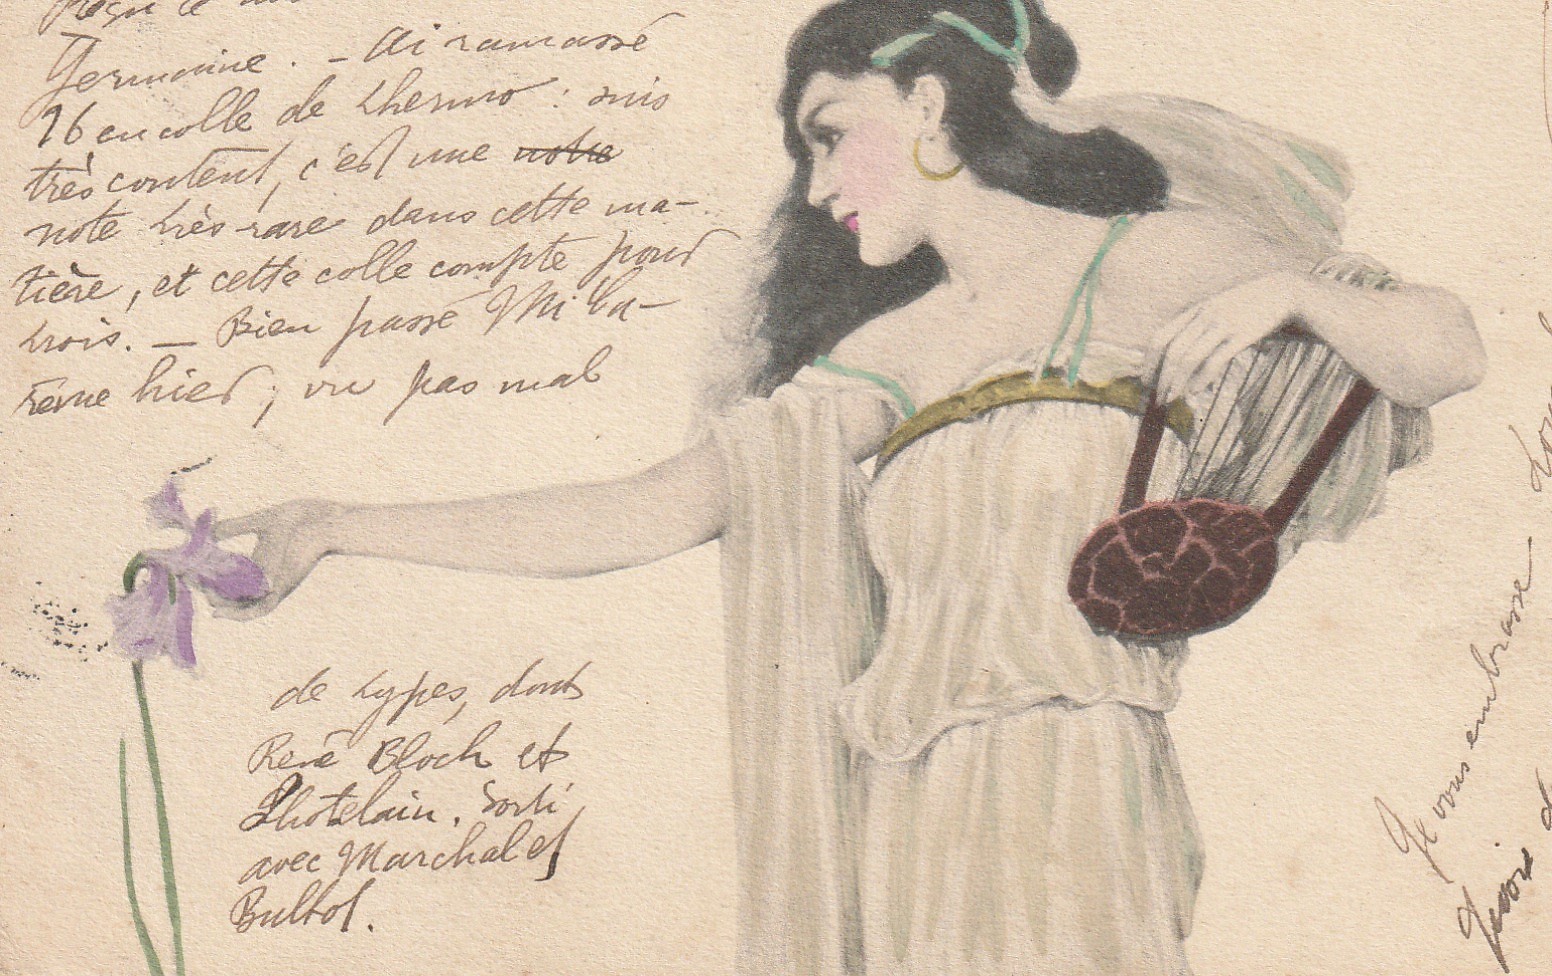 Reçu ce
Germaine. - Ai ramassé
16 en colle de thermo : suis
très content, c'est une notre
note très rare dans cette ma-
tière, et cette colle compte pour
trois. — Bien passé Mi Ca-
rême hier ; vu pas mal
de types, dont
René Bloch et
Lhotelain. Sorti
avec Marchal et
Bultot.
Je vous embrasse